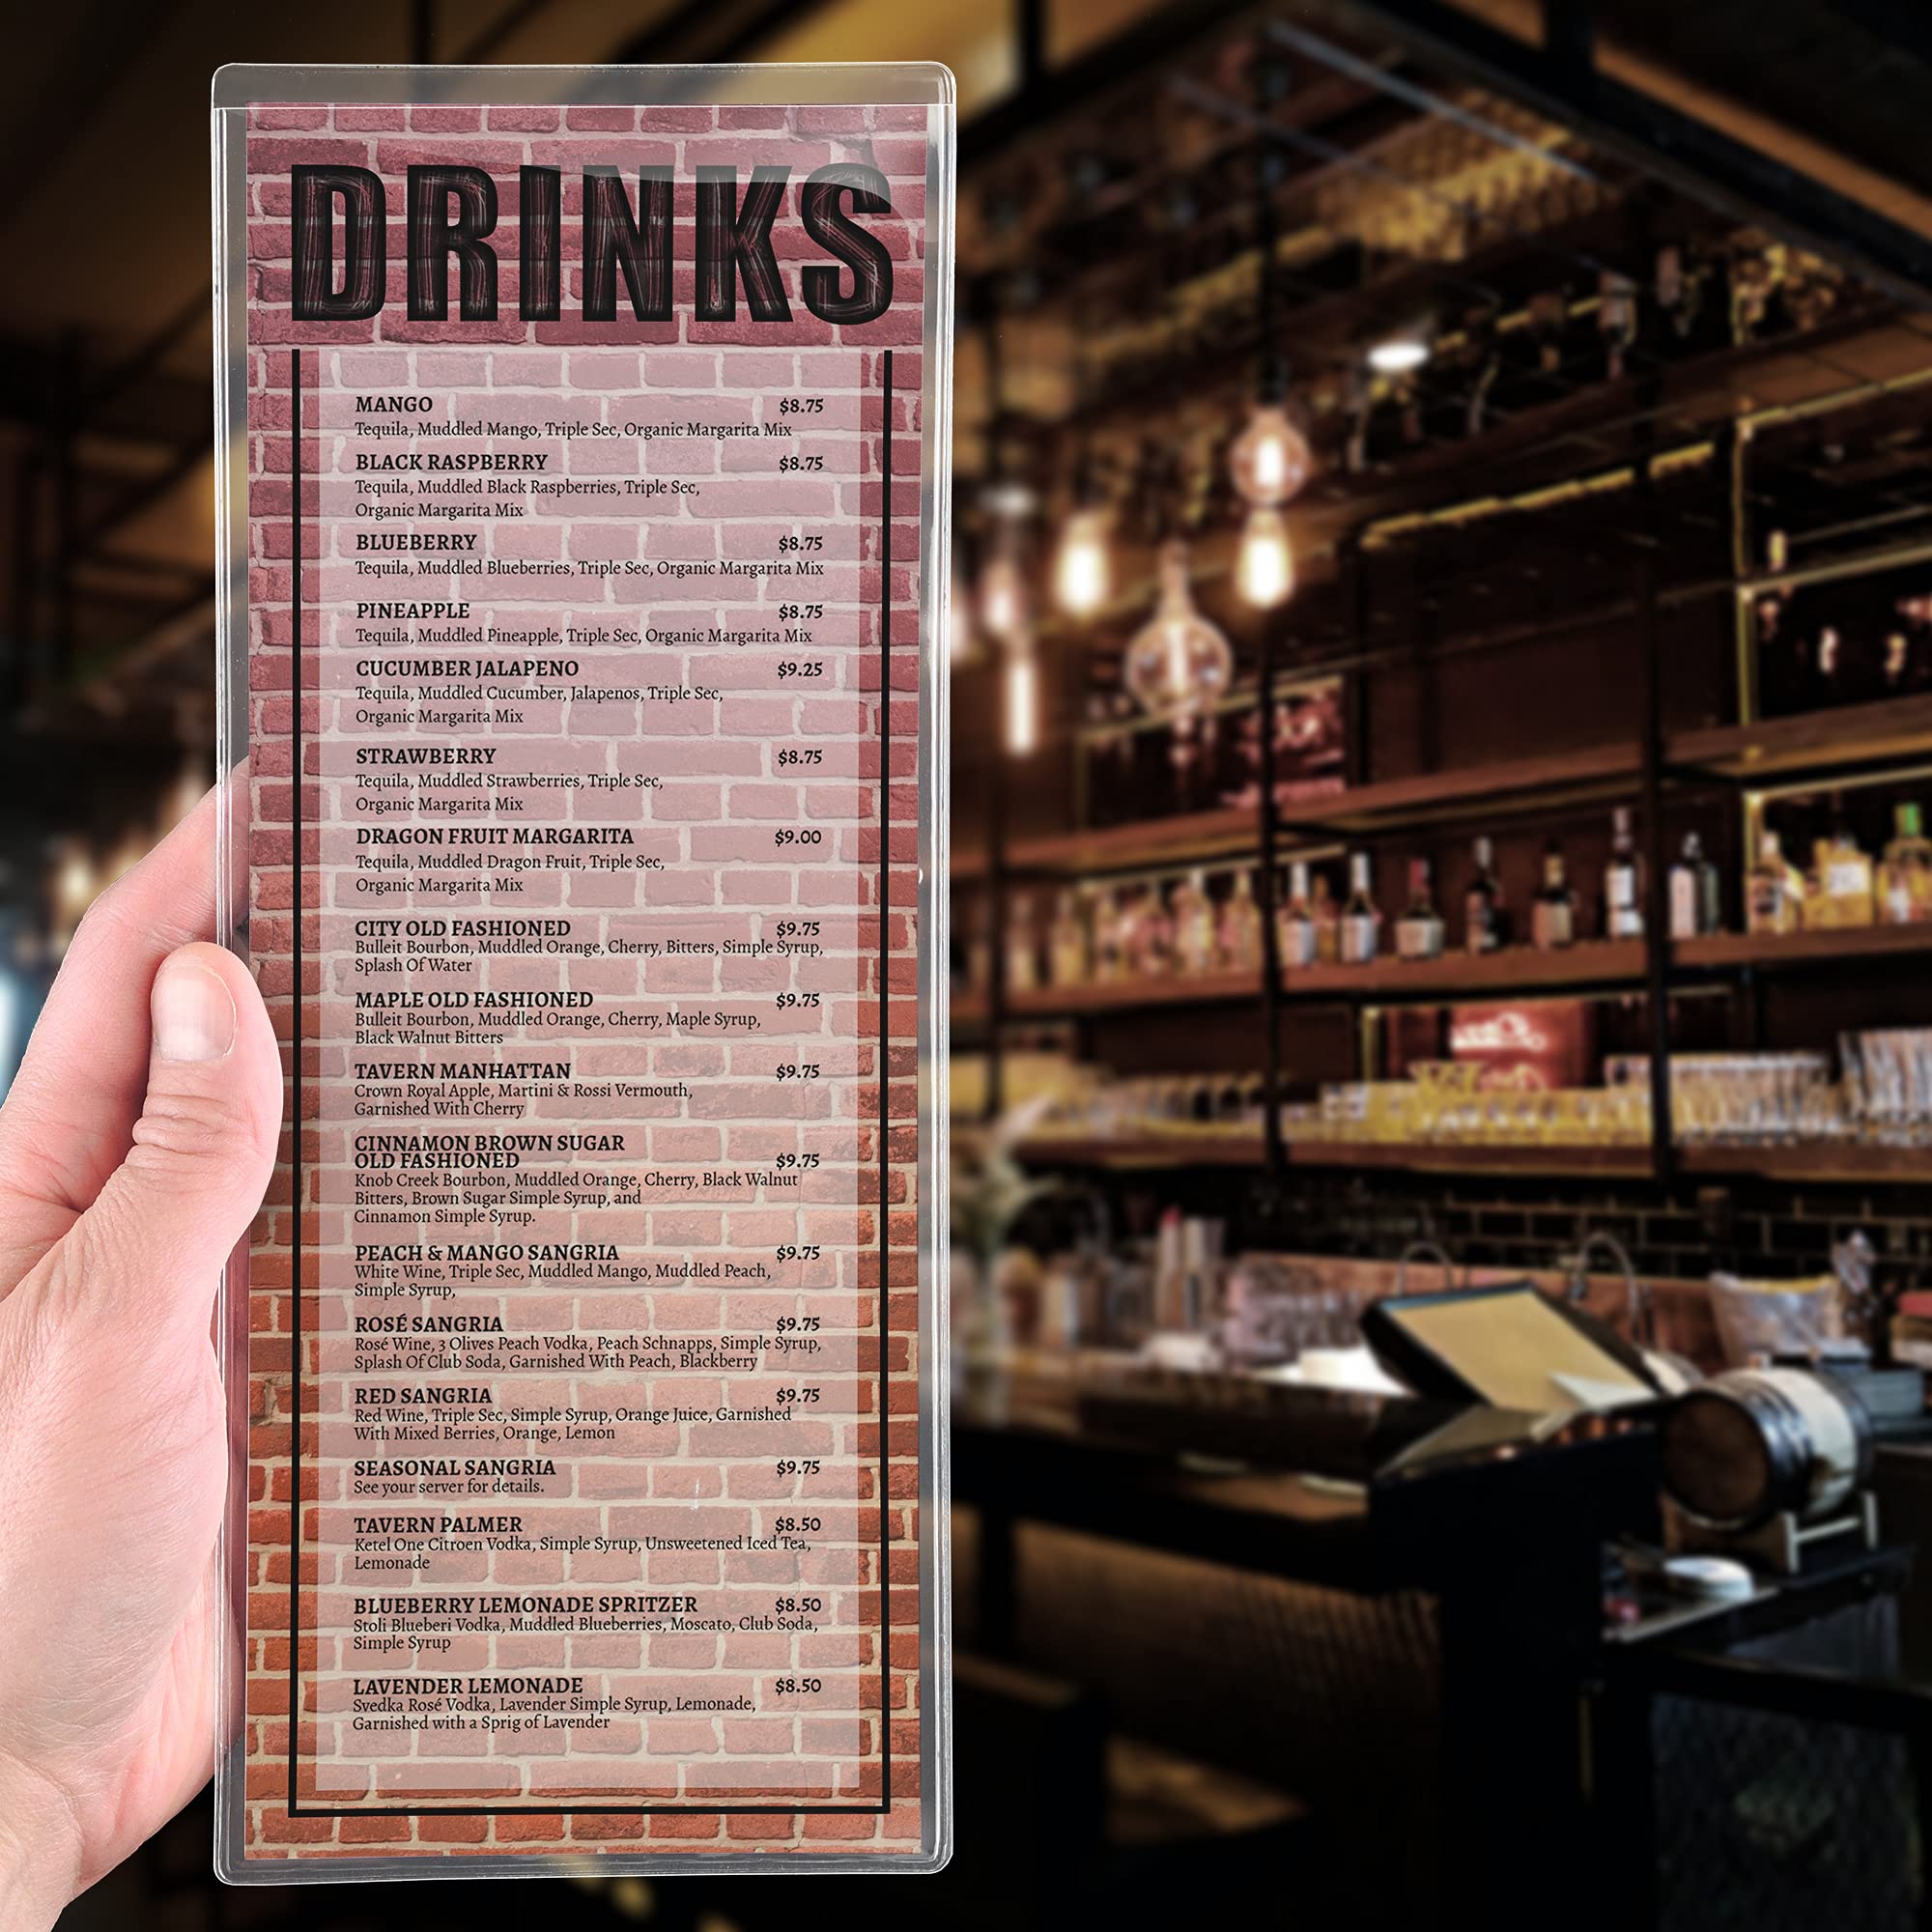 DRINKS
MANGO $8.75
Tequila, Muddled Mango, Triple Sec, Organic Margarita Mix
BLACK RASPBERRY $8.75
Tequila, Muddled Black Raspberries, Triple Sec,
Organic Margarita Mix
BLUEBERRY $8.75
Tequila, Muddled Blueberries, Triple Sec, Organic Margarita Mix
PINEAPPLE $8.75
Tequila, Muddled Pineapple, Triple Sec, Organic Margarita Mix
CUCUMBER JALAPENO $9.25
Tequila, Muddled Cucumber, Jalapenos, Triple Sec,
Organic Margarita Mix
STRAWBERRY $8.75
Tequila, Muddled Strawberries, Triple Sec,
Organic Margarita Mix
DRAGON FRUIT MARGARITA $9.00
Tequila, Muddled Dragon Fruit, Triple Sec,
Organic Margarita Mix
CITY OLD FASHIONED $9.75
Bulleit Bourbon, Muddled Orange, Cherry, Bitters, Simple Syrup,
Splash Of Water
MAPLE OLD FASHIONED $9.75
Bulleit Bourbon, Muddled Orange, Cherry, Maple Syrup,
Black Walnut Bitters
TAVERN MANHATTAN $9.75
Crown Royal Apple, Martini & Rossi Vermouth,
Garnished With Cherry
CINNAMON BROWN SUGAR
OLD FASHIONED $9.75
Knob Creek Bourbon, Muddled Orange, Cherry, Black Walnut
Bitters, Brown Sugar Simple Syrup, and
Cinnamon Simple Syrup.
PEACH & MANGO SANGRIA $9.75
White Wine, Triple Sec, Muddled Mango, Muddled Peach,
Simple Syrup,
ROSÉ SANGRIA $9.75
Rosé Wine, 3 Olives Peach Vodka, Peach Schnapps, Simple Syrup,
Splash Of Club Soda, Garnished With Peach, Blackberry
RED SANGRIA $9.75
Red Wine, Triple Sec, Simple Syrup, Orange Juice, Garnished
With Mixed Berries, Orange, Lemon
SEASONAL SANGRIA $9.75
See your server for details.
TAVERN PALMER $8.50
Ketel One Citroen Vodka, Simple Syrup, Unsweetened Iced Tea,
Lemonade
BLUEBERRY LEMONADE SPRITZER $8.50
Stoli Blueberi Vodka, Muddled Blueberries, Moscato, Club Soda,
Simple Syrup
LAVENDER LEMONADE $8.50
Svedka Rosé Vodka, Lavender Simple Syrup, Lemonade,
Garnished with a Sprig of Lavender